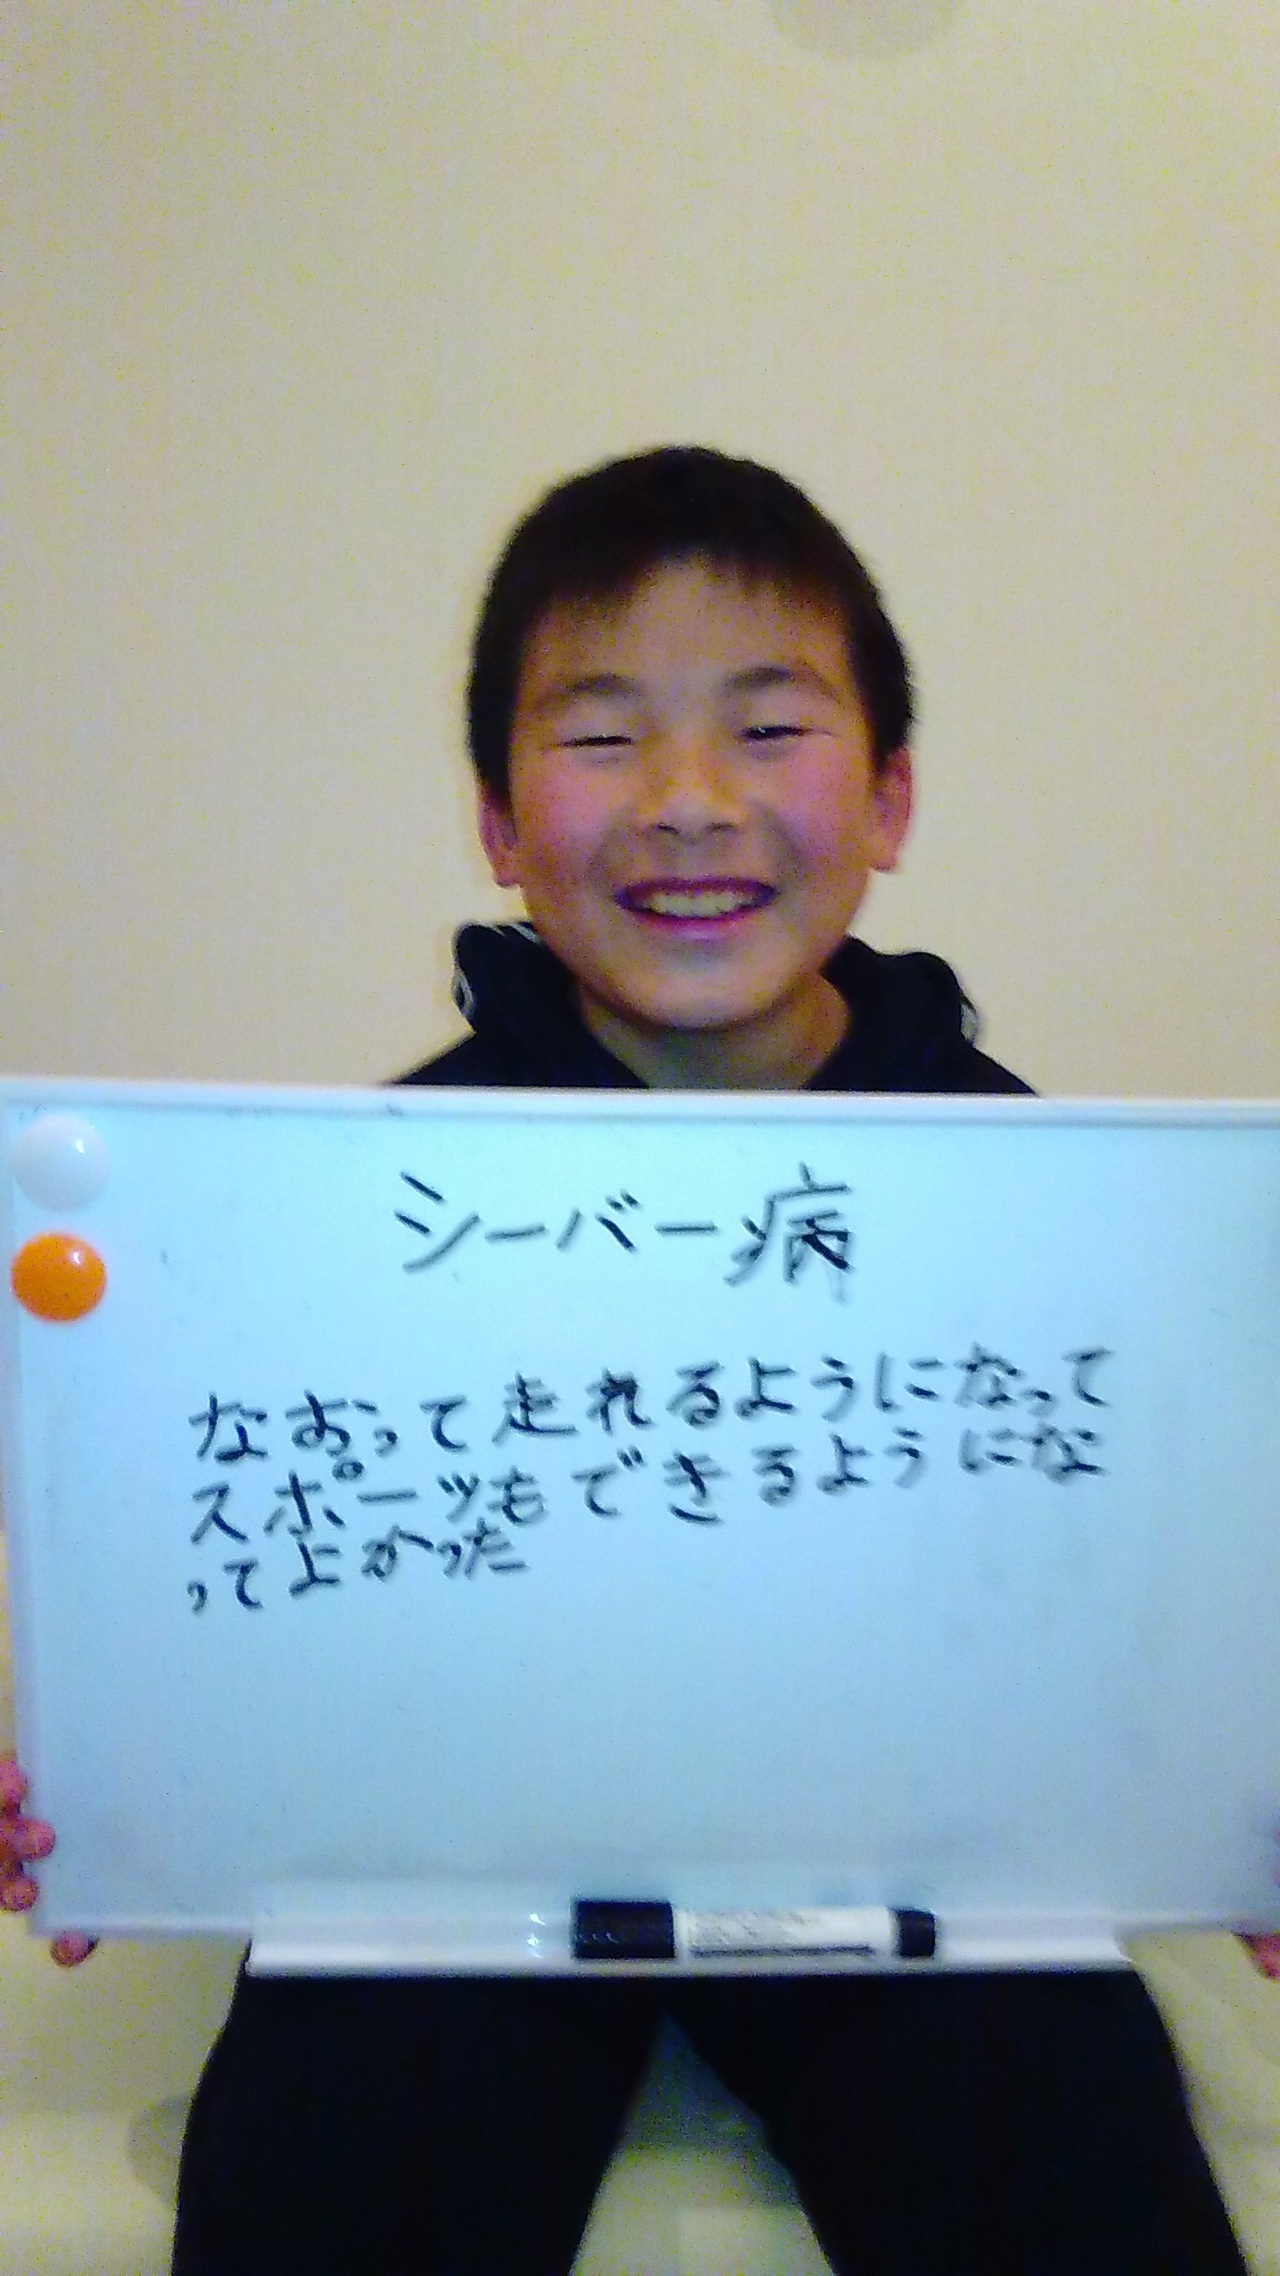 シーバー病
なおって走れるようになって
スポーツもできるようにな
ってよかった